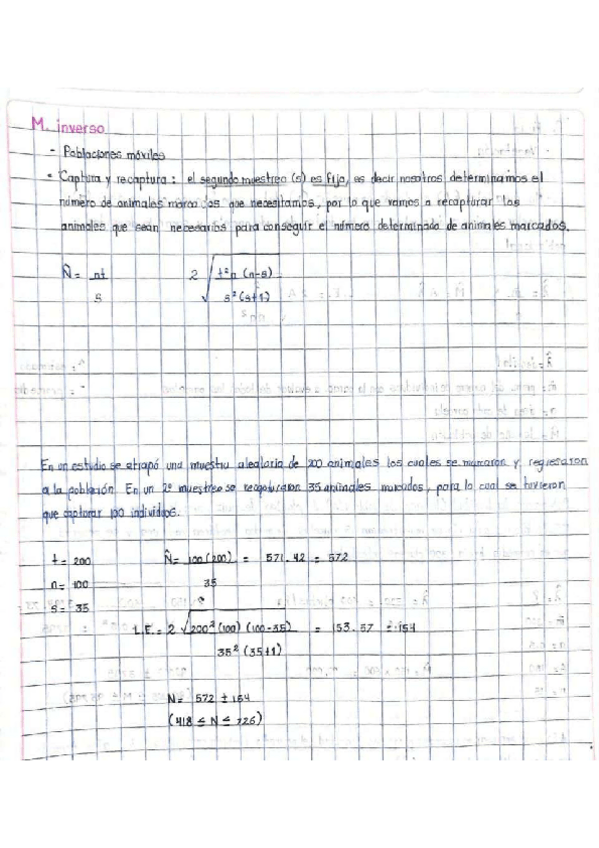 M. inverso
- Poblaciones móviles
• Captura y recaptura: el segundo muestreo (s) es fijo, es decir nosotros determinamos el
número de animales marcados que necesitamos, por lo que vamos a recapturar los
animales que sean necesarios para conseguir el número determinado de animales marcados.
N̂ = nt / s 2 √ t²n (n-s) / s² (s+1)
En un estudio se atrapó una muestra aleatoria de 200 animales los cuales se marcaron y regresaron
a la población. En un 2° muestreo se recapturaron 35 animales marcados, para lo cual se tuvieron
que capturar 100 individuos.
t = 200 N̂ = 100 (200) / 35 = 571.42 = 572
n = 100
s = 35
L.E. = 2 √ 200² (100) (100-35) / 35² (35+1) = 153.57 = 154
N = 572 ± 154
(418 ≤ N ≤ 726)